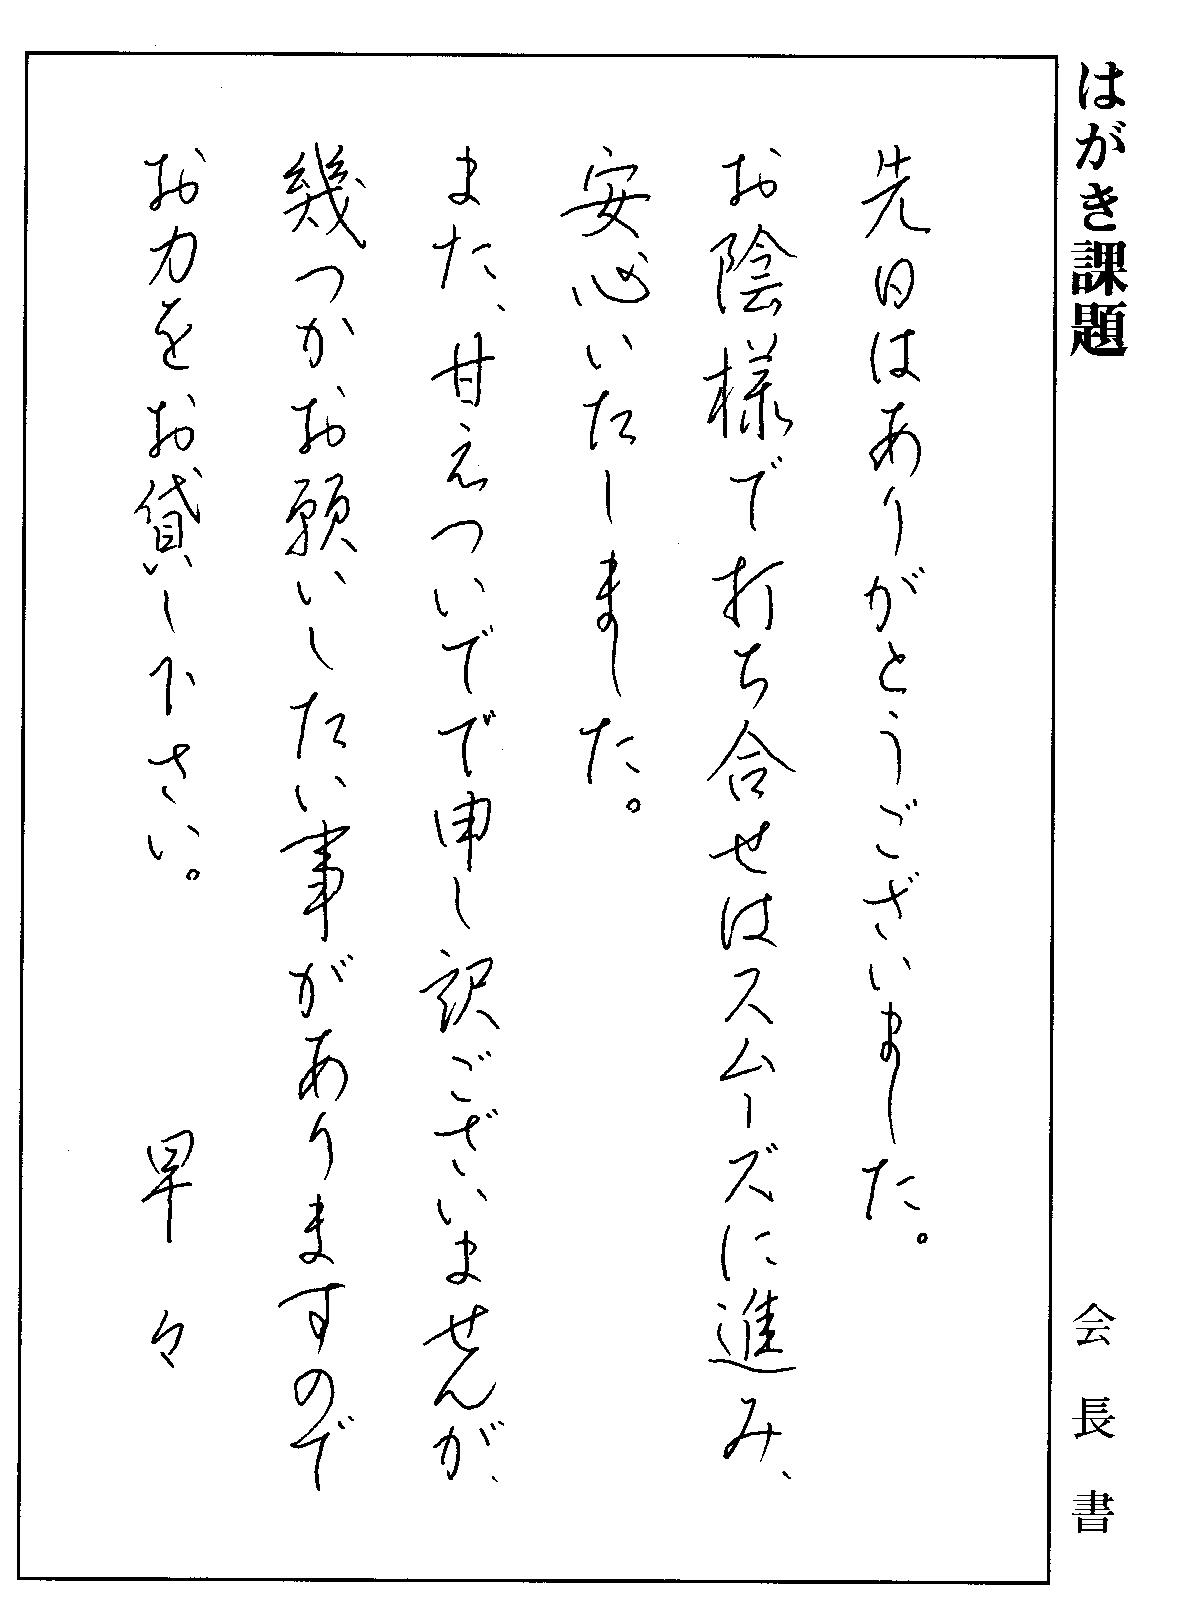 はがき課題
会長書
先日はありがとうございました。
お陰様で打ち合せはスムーズに進み、
安心いたしました。
また、甘えついでで申し訳ございませんが、
幾つかお願いしたい事がありますので
お力をお貸し下さい。
早々